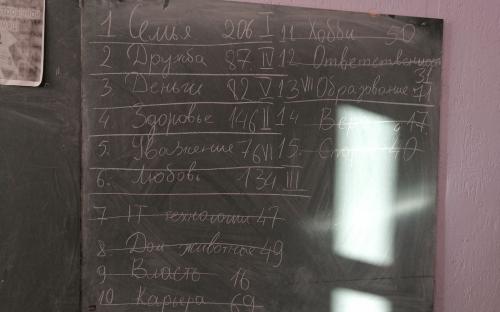 1 Семья 206 I
2 Дружба 87 IV
3 Деньги 82 V
4. Здоровье 146 II
5. Уважение 76 VI
6. Любовь 134 III
7 IT технологии 47
8 Дом животное 49
9 Власть 16
10 Карьера 69
11 Хобби 50
12 Ответственность
31
13 VII Образование 71
14 17
15. 40